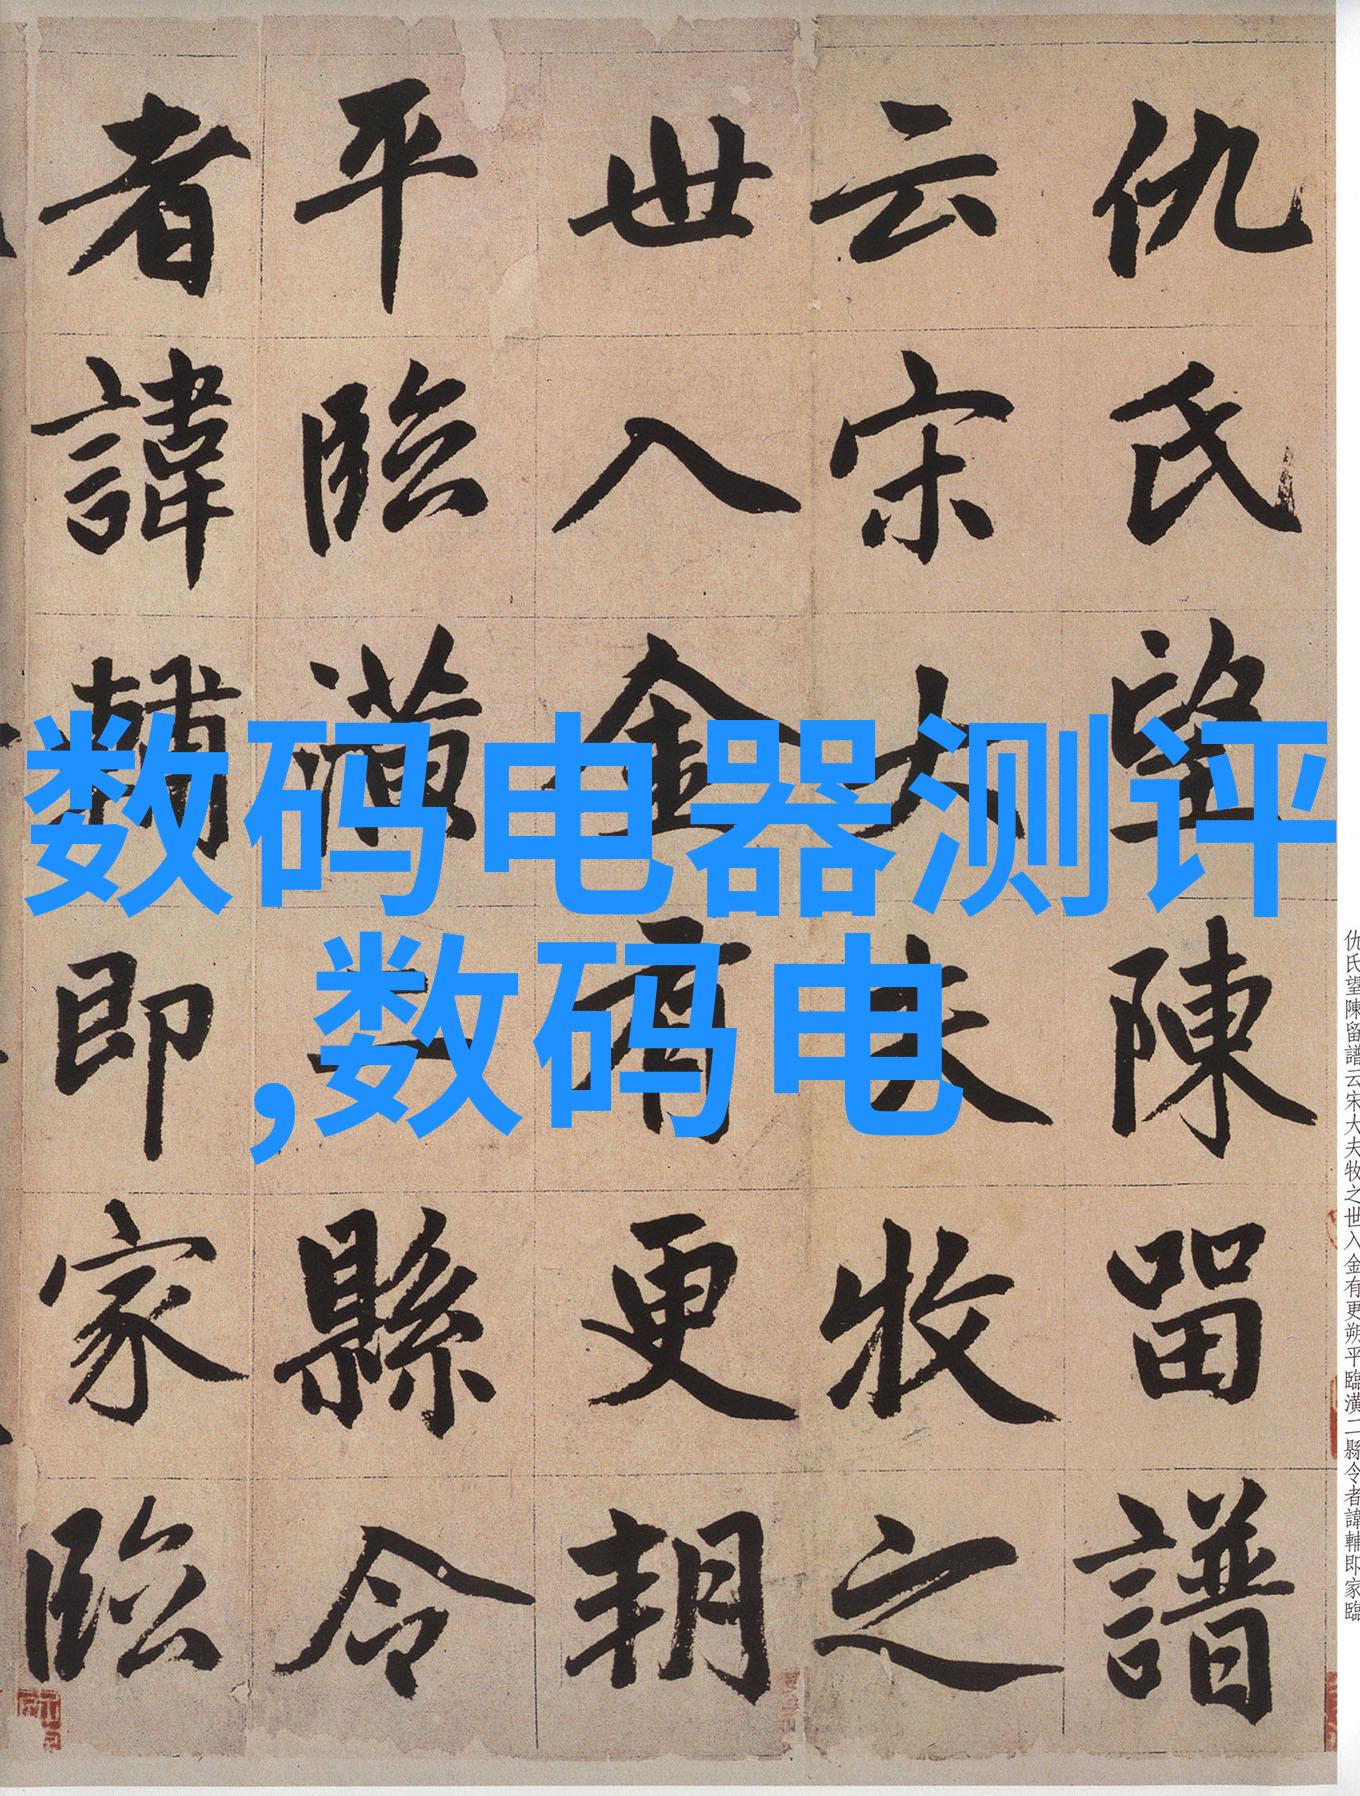 仇氏望陳留譜
云宋大夫牧之
世入金有更朔
平臨潢二縣令
者諱輔即家臨
数码电器测评
,数码电
仇氏望陳留譜云宋大夫牧之世入金有更朔平臨潢二縣令者諱輔即家臨